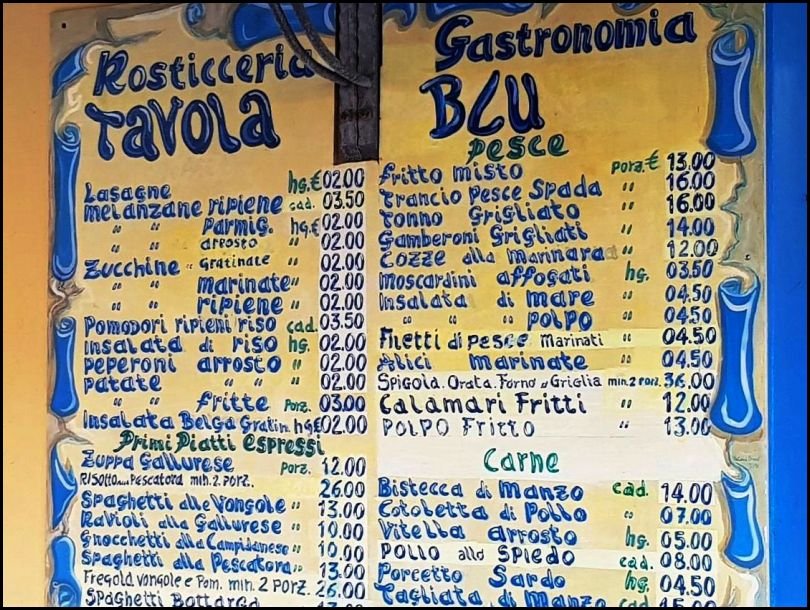 Rosticceria
TAVOLA
Lasagne hg.€ 02.00
melanzane ripiene cad. 03.50
" " Parmig. hg.€ 02.00
" " arrosto " 02.00
Zucchine " Gratinate " 02.00
" " marinate " 02.00
" " ripiene " 02.00
Pomodori ripieni riso cad. 03.50
insalata di riso hg. 02.00
peperoni arrosto " 02.00
patate " " " 02.00
" " fritte Porz. 03.00
insalata Belga Gratin. hg€ 02.00
Primi Piatti espressi
Zuppa Gallurese Porz. 12.00
RISOTTO.... Pescatora min. 2. Porz. 26.00
Spaghetti alle Vongole " 13.00
Ravioli alla Gallurese " 10.00
Gnocchetti alla Campidanese " 10.00
Spaghetti alla Pescatora " 13.00
Fregola vongole e Pom. min. 2 Porz. 26.00
Spaghetti Bottarga
Gastronomia
BLU
pesce
fritto misto porz.€ 13.00
trancio pesce Spada " 16.00
tonno Grigliato " 16.00
Gamberoni Grigliati " 14.00
Cozze alla marinara " 12.00
moscardini affogati hg. 03.50
insalata di mare " 04.50
" " " polpo " 04.50
Filetti di pesce Marinati " 04.50
Alici marinate " 04.50
Spigola. Orata. Forno " Griglia min. 2 porz. 36.00
Calamari Fritti " 12.00
POLPO Fritto " 13.00
Carne
Bistecca di Manzo cad. 14.00
Cotoletta di Pollo " 07.00
Vitella arrosto hg. 05.00
POLLO allo Spiedo cad. 08.00
Porcetto Sardo hg. 04.50
Tagliata di Manzo cad.